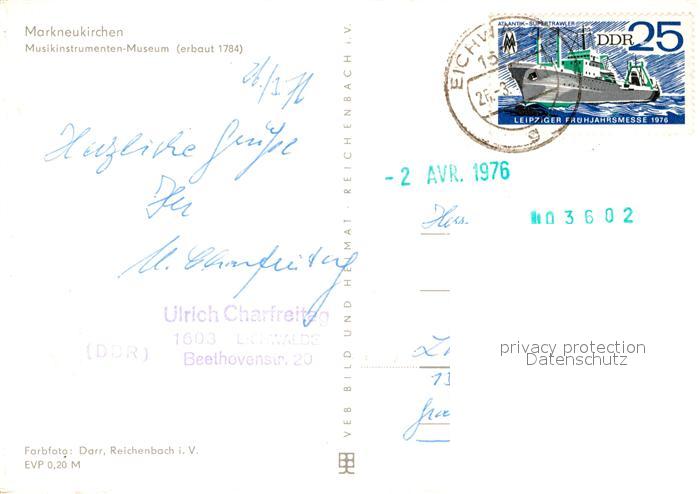 Markneukirchen
Musikinstrumenten-Museum (erbaut 1784)
26/3 76
Herzliche Grüße
Ihr
U. Charfreitag
Ulrich Charfreitag
1603 EICHWALDE
(DDR) Beethovenstr. 20
Farbfoto: Darr, Reichenbach i. V.
EVP 0,20 M
VEB BILD UND HEIMAT · REICHENBACH i. V.
ATLANTIK-SUPERTRAWLER
DDR 25
LEIPZIGER FRÜHJAHRSMESSE 1976
EICHW
26.-3.
- 2 AVR. 1976
03602
Herr
privacy protection
Datenschutz